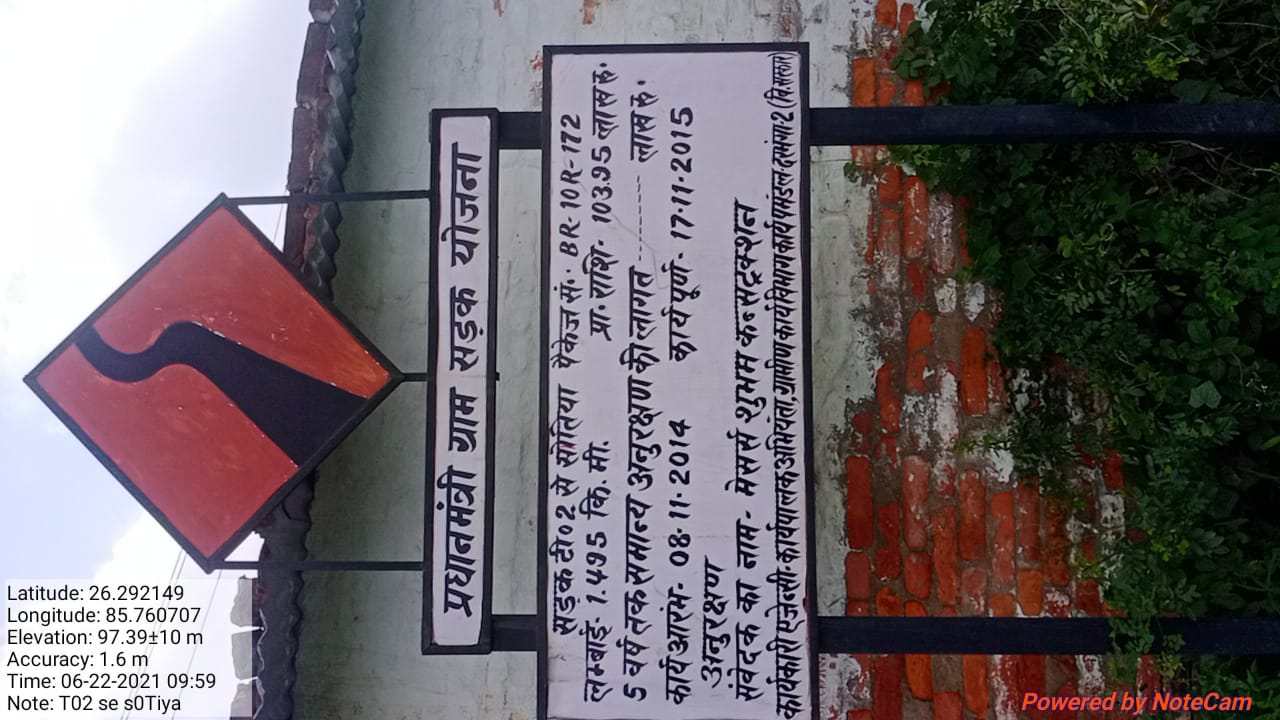 प्रधानमंत्री ग्राम सड़क योजना
सड़क टी०2 से सोतिया पैकेज सं. BR-10R-172
लम्बाई- 1.495 कि.मी. प्रा. राशि- 103.95 लाख रु.
5 वर्ष तक समान्य अनुरक्षण की लागत ---------- लाख रु.
कार्य आरंभ- 08.11.2014 कार्य पूर्ण- 17.11.2015
अनुरक्षण
संवेदक का नाम- मेसर्स शुभम कन्सट्रक्शन
कार्यकारी एजेन्सी- कार्यपालक अभियंता, ग्रामीण कार्य विभाग कार्य प्रमंडल
Latitude: 26.292149
Longitude: 85.760707
Elevation: 97.39±10 m
Accuracy: 1.6 m
Time: 06-22-2021 09:59
Note: T02 se s0Tiya
Powered by NoteCam